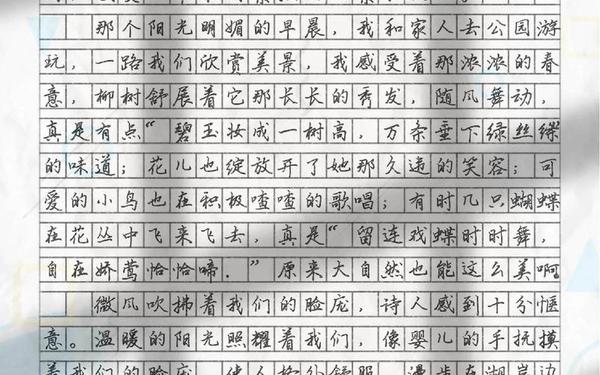 那个阳光明媚的早晨，我和家人去公园游
玩，一路我们欣赏美景，我感受着那浓浓的春
意，柳树舒展着它那长长的秀发，随风舞动，
真是有点“碧玉妆成一树高，万条垂下绿丝绦
的味道；花儿也绽放开了她那久违的笑容；可
爱的小鸟也在积极喳喳的歌唱；有时几只蝴蝶
在花丛中飞来飞去，真是“留连戏蝶时时舞，
自在娇莺恰恰啼．”原来大自然也能这么美啊
微风吹拂着我们的脸庞，诗人感到十分惬
意。温暖的阳光照耀着我们，像婴儿的手抚摸
着我们的脸庞，使人格外舒服．漫步在湖岸边